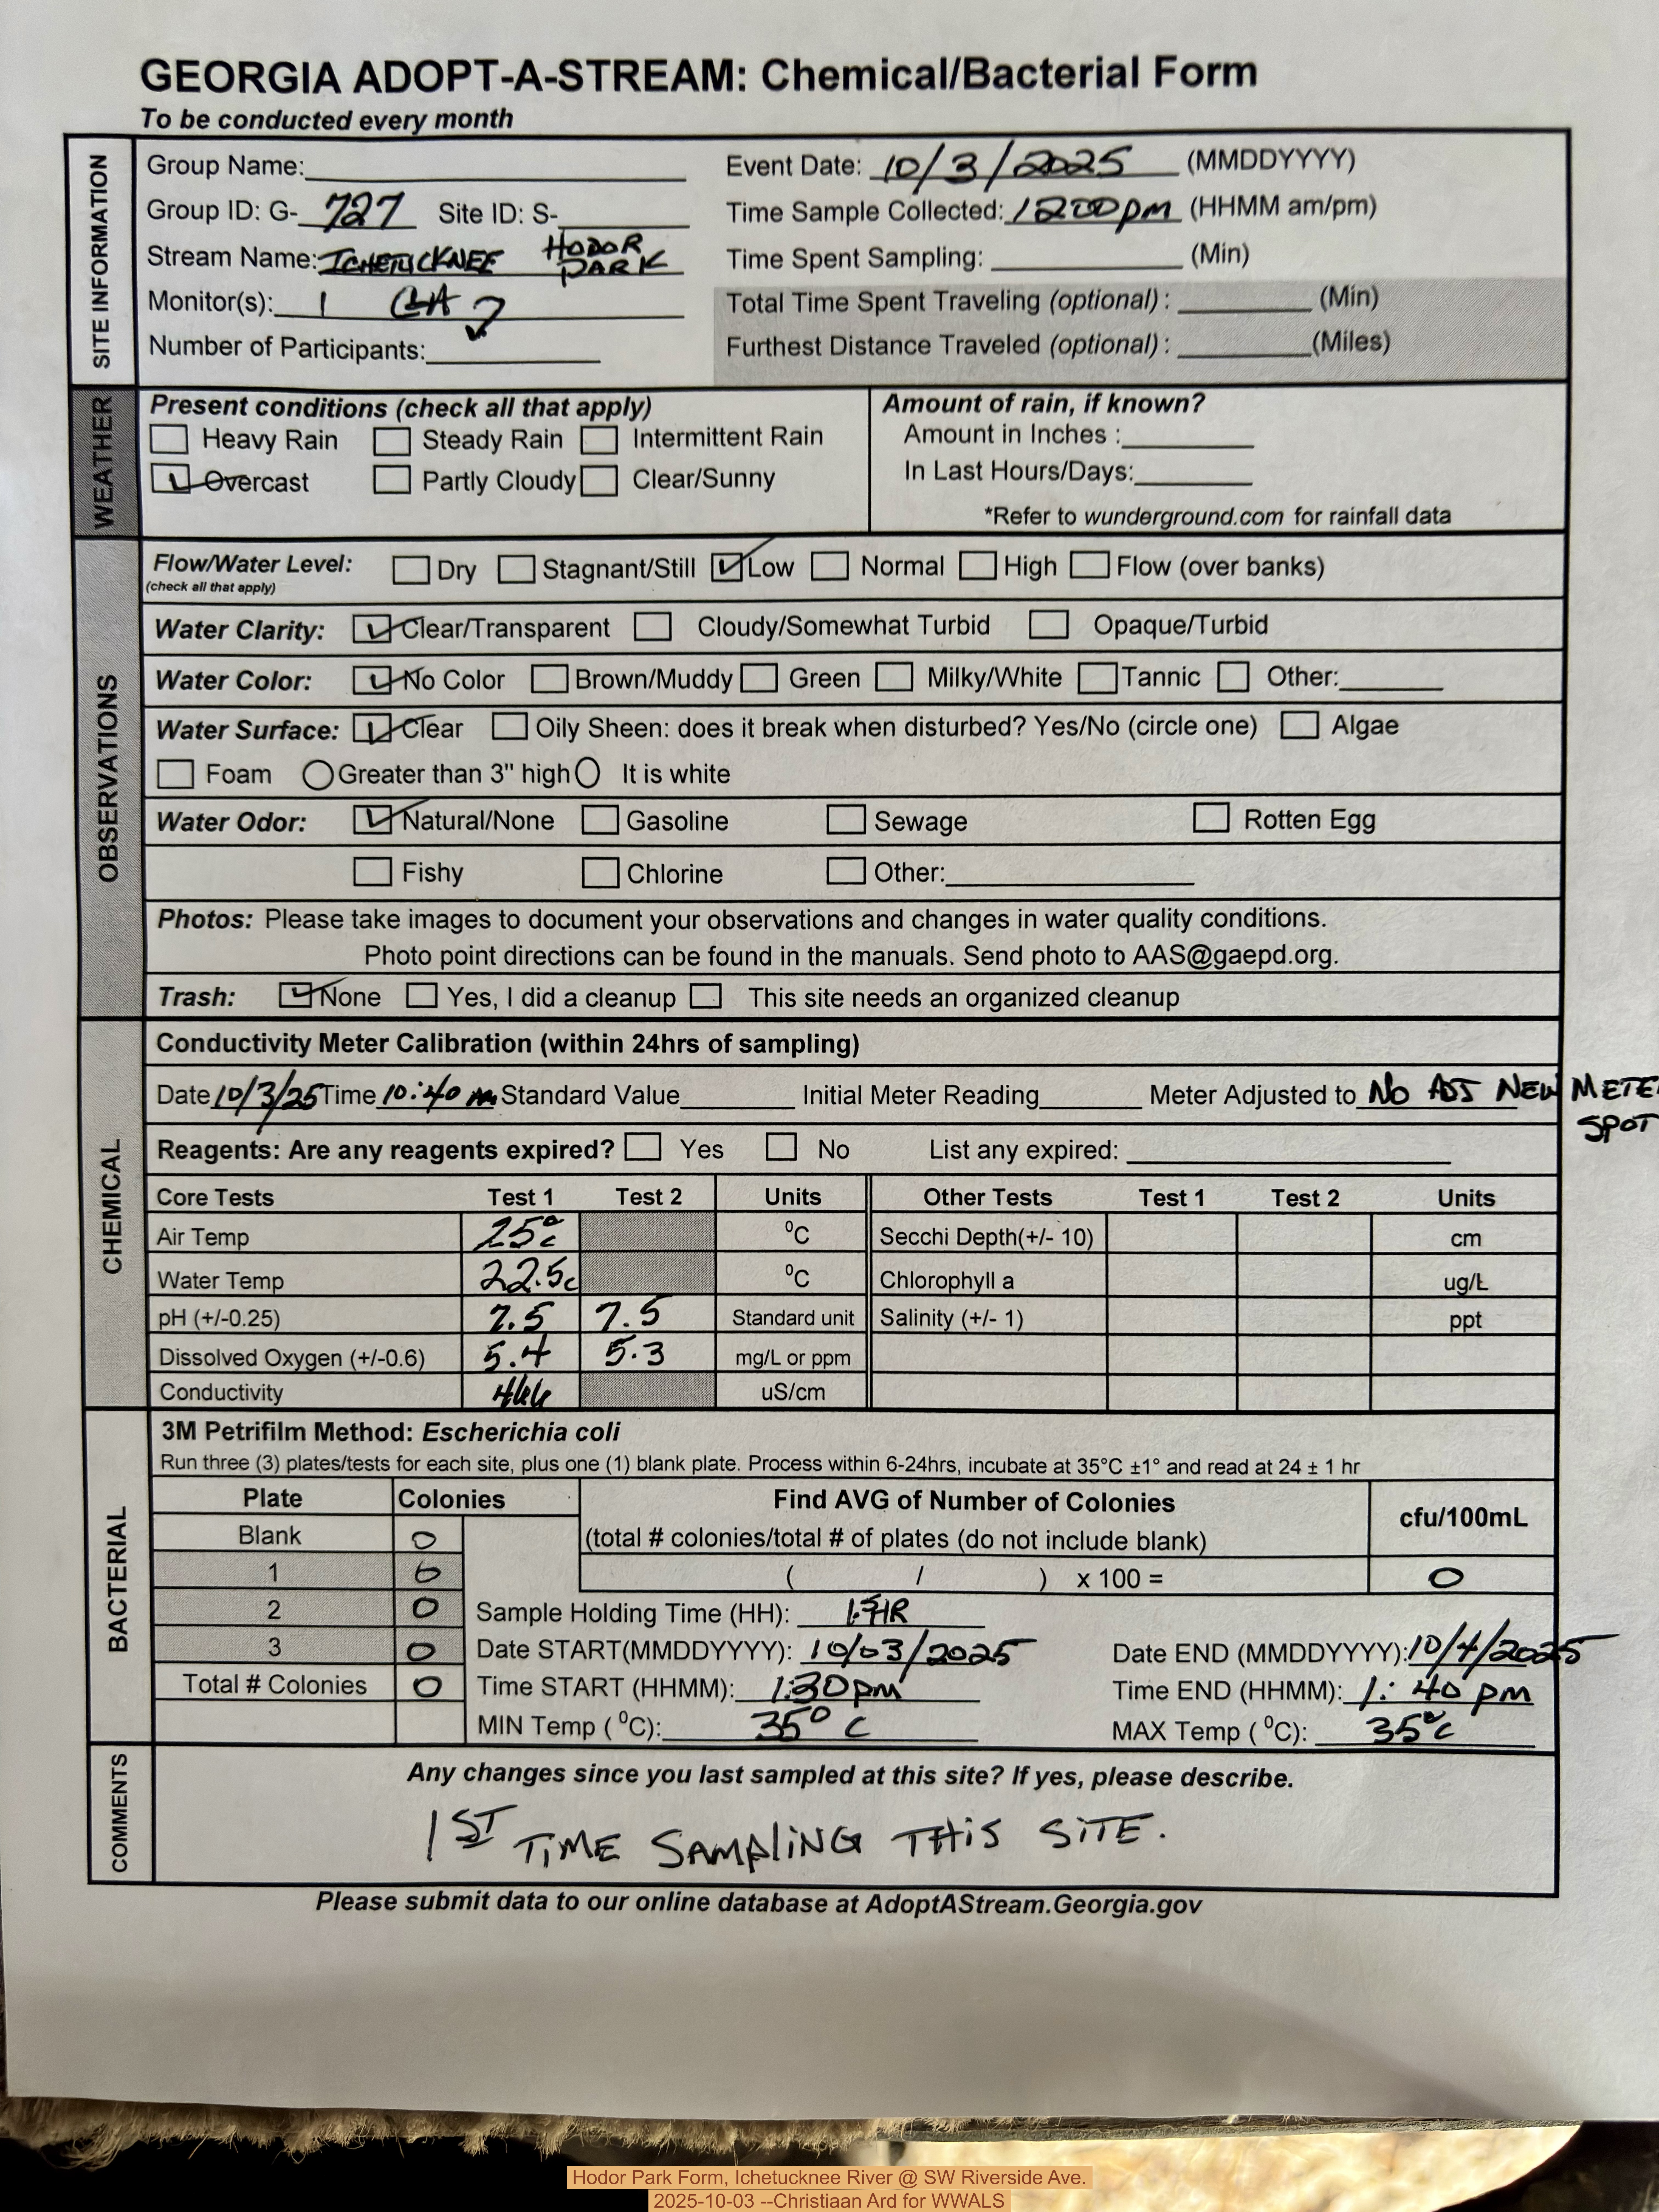 GEORGIA ADOPT-A-STREAM: Chemical/Bacterial Form
To be conducted every month
SITE INFORMATION
Group Name: Event Date: 10/3/2025 (MMDDYYYY)
Group ID: G- 727 Site ID: S- Time Sample Collected: 1200pm (HHMM am/pm)
Stream Name: ICHETUCKNEE HODOR PARK Time Spent Sampling: (Min)
Monitor(s): 1 Total Time Spent Traveling (optional) : (Min)
Number of Participants: Furthest Distance Traveled (optional) : (Miles)
WEATHER
Present conditions (check all that apply) Amount of rain, if known?
Heavy Rain Steady Rain Intermittent Rain Amount in Inches :
Overcast Partly Cloudy Clear/Sunny In Last Hours/Days:
*Refer to wunderground.com for rainfall data
OBSERVATIONS
Flow/Water Level: Dry Stagnant/Still Low Normal High Flow (over banks)
(check all that apply)
Water Clarity: Clear/Transparent Cloudy/Somewhat Turbid Opaque/Turbid
Water Color: No Color Brown/Muddy Green Milky/White Tannic Other:
Water Surface: Clear Oily Sheen: does it break when disturbed? Yes/No (circle one) Algae
Foam Greater than 3" high It is white
Water Odor: Natural/None Gasoline Sewage Rotten Egg
Fishy Chlorine Other:
Photos: Please take images to document your observations and changes in water quality conditions.
Photo point directions can be found in the manuals. Send photo to AAS@gaepd.org.
Trash: None Yes, I did a cleanup This site needs an organized cleanup
CHEMICAL
Conductivity Meter Calibration (within 24hrs of sampling)
Date 10/3/25 Time 10:40 Standard Value Initial Meter Reading Meter Adjusted to NO ADJ NEW METE
SPOT
Reagents: Are any reagents expired? Yes No List any expired:
Core Tests Test 1 Test 2 Units Other Tests Test 1 Test 2 Units
Air Temp 25°c ⁰C Secchi Depth(+/- 10) cm
Water Temp 22.5c ⁰C Chlorophyll a ug/L
pH (+/-0.25) 7.5 7.5 Standard unit Salinity (+/- 1) ppt
Dissolved Oxygen (+/-0.6) 5.4 5.3 mg/L or ppm
Conductivity uS/cm
BACTERIAL
3M Petrifilm Method: Escherichia coli
Run three (3) plates/tests for each site, plus one (1) blank plate. Process within 6-24hrs, incubate at 35°C ±1° and read at 24 ± 1 hr
Plate Colonies Find AVG of Number of Colonies cfu/100mL
Blank 0 (total # colonies/total # of plates (do not include blank)
1 0 ( / ) x 100 = 0
2 0 Sample Holding Time (HH): 1.5HR
3 0 Date START(MMDDYYYY): 10/03/2025 Date END (MMDDYYYY): 10/4/2025
Total # Colonies 0 Time START (HHMM): 1:30pm Time END (HHMM): 1:40 pm
MIN Temp (⁰C): 35° C MAX Temp (⁰C): 35°c
COMMENTS
Any changes since you last sampled at this site? If yes, please describe.
1ST TIME SAMPLING THIS SITE.
Please submit data to our online database at AdoptAStream.Georgia.gov
Hodor Park Form, Ichetucknee River @ SW Riverside Ave.
2025-10-03 --Christiaan Ard for WWALS